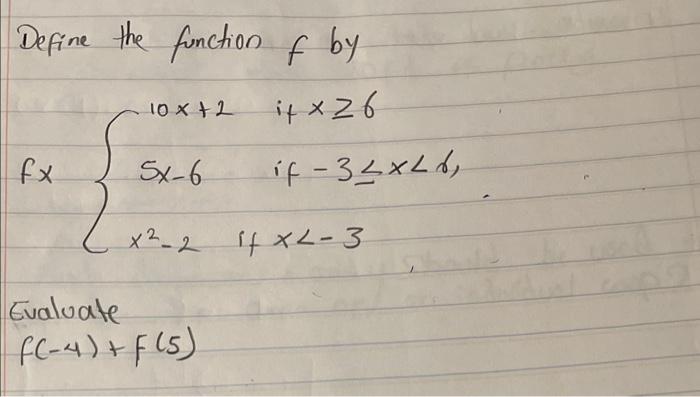 Define the function f by
10x+2 if x≥6
fx { 5x-6 if -3≤x<6,
x²-2 if x<-3
Evaluate
f(-4)+f(5)